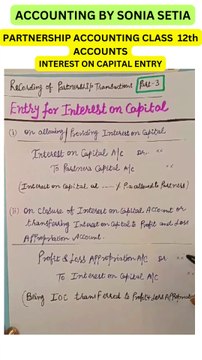 ACCOUNTING BY SONIA SETIA
PARTNERSHIP ACCOUNTING CLASS 12th
ACCOUNTS
INTEREST ON CAPITAL ENTRY
Recording of Partnership Transactions Part-3
Entry for Interest on Capital
(i) On allowing/Providing Interest on Capital
Interest on Capital A/c Dr. "
To Partners Capital A/c "
(Interest on Capital at ---- % P.a allowed to Partners)
(ii) On closure of Interest on Capital Account or
transferring Interest on Capital to Profit and Loss
Appropriation Account.
Profit & Loss Appropriation A/c Dr "
To Interest on Capital A/c "
(Being IOC transferred to Profit & Loss Appropriation